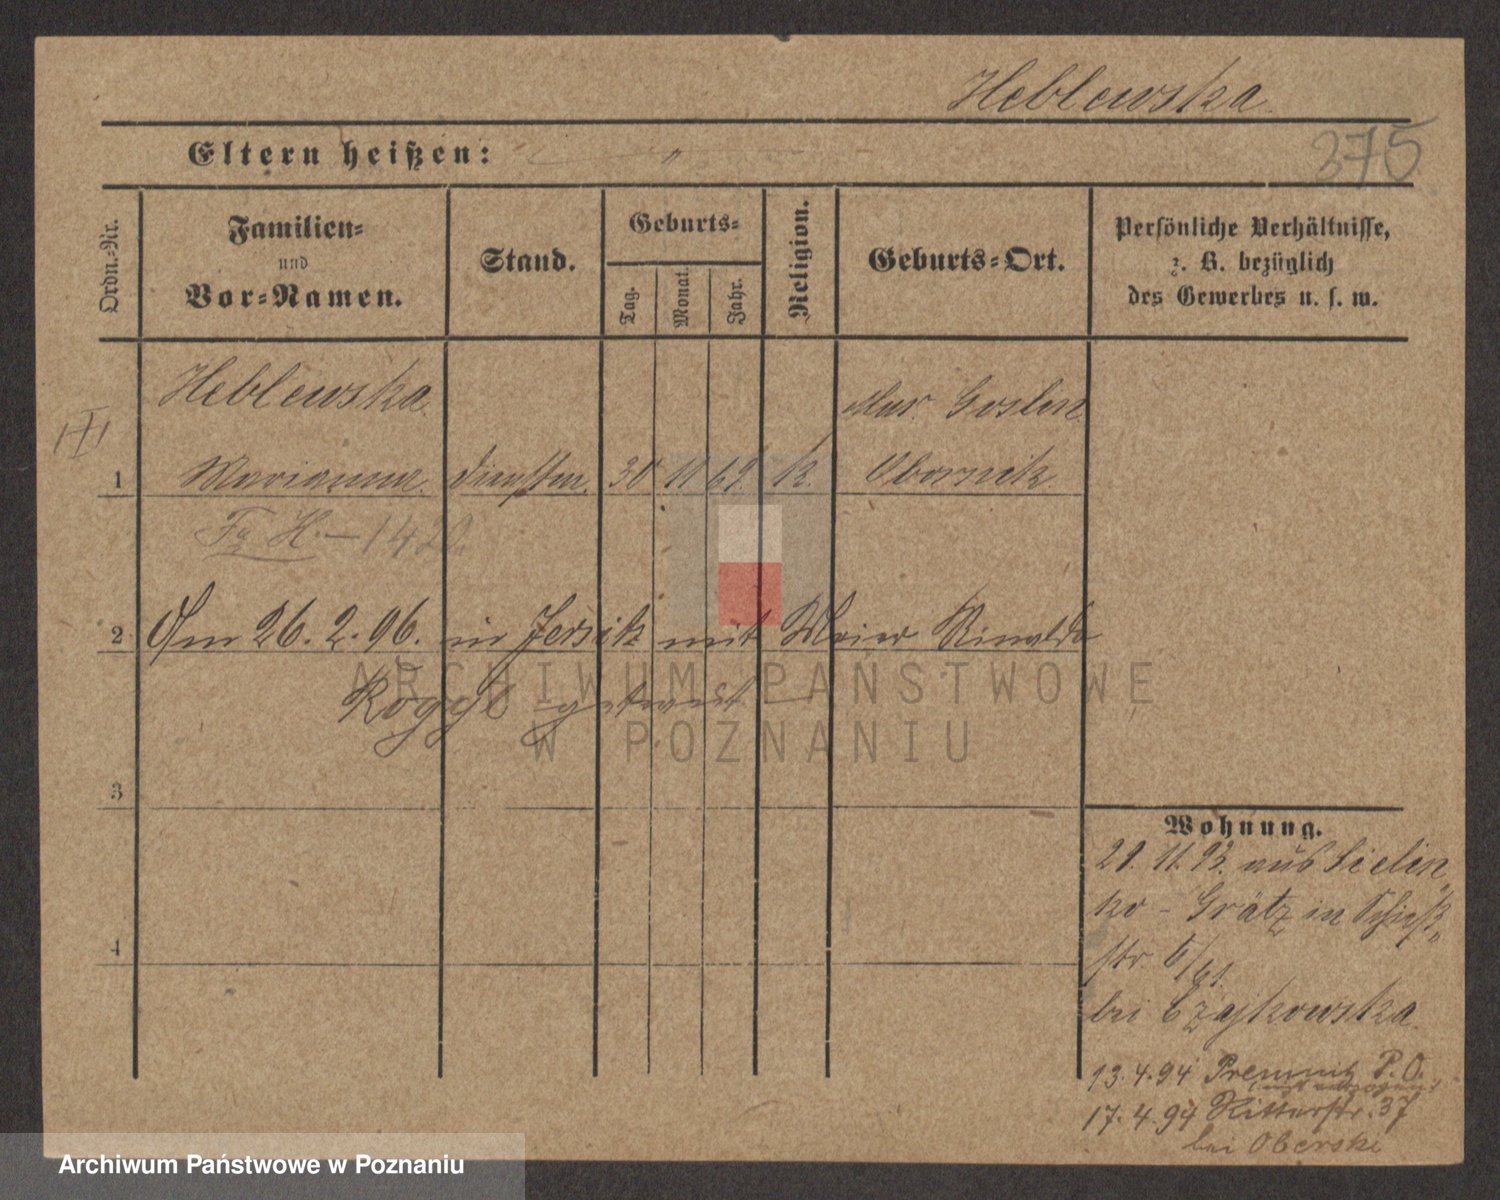 Heblewska
375
Eltern heißen:
Ordn.-Nr.
Familien-
und
Vor-Namen.
Stand.
Geburts-
Tag.
Monat.
Jahr.
Religion.
Geburts-Ort.
Persönliche Verhältnisse,
z. B. bezüglich
des Gewerbes u. s. w.
Heblewska
Mur. Goslin
1 Marianna 30 11 69. k. Obornik
Fg H. — 142
2 Am 26. 2. 96. in Jersik mit Maier Rinaldo
Rogge getraut —
3
4
Wohnung.
21. 11. 93. aus Sielin
ko - Grätz in Schieß
str 6/61.
bei Czajkowska
13. 4. 94 Premnitz P. O.
17. 4. 94 Ritterstr. 37
bei Oberski
ARCHIWUM PAŃSTWOWE
W POZNANIU
Archiwum Państwowe w Poznaniu